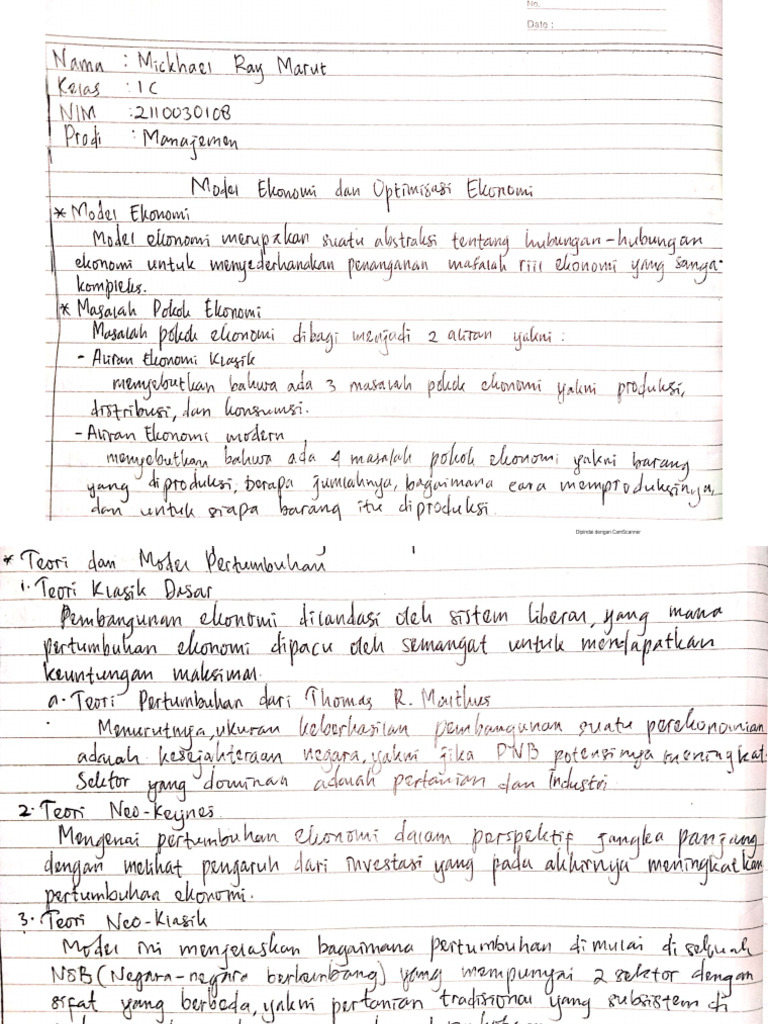 No.
Date :
Nama : Mickhael Ray Marut
Kelas : 1C
NIM : 2110030108
Prodi : Manajemen
Model Ekonomi dan Optimisasi Ekonomi
* Model Ekonomi
Model ekonomi merupakan suatu abstraksi tentang hubungan-hubungan
ekonomi untuk menyederhanakan penanganan masalah riil ekonomi yang sanga
kompleks.
* Masalah Pokok Ekonomi
Masalah pokok ekonomi dibagi menjadi 2 aliran yakni :
- Aliran Ekonomi Klasik
menyebutkan bahwa ada 3 masalah pokok ekonomi yakni produksi,
distribusi, dan konsumsi.
- Aliran Ekonomi modern
menyebutkan bahwa ada 4 masalah pokok ekonomi yakni barang
yang diproduksi, berapa jumlahnya, bagaimana cara memproduksinya,
dan untuk siapa barang itu diproduksi.
Dipindai dengan CamScanner
* Teori dan Model Pertumbuhan
1. Teori Klasik Dasar
Pembangunan ekonomi dilandasi oleh sistem liberal, yang mana
pertumbuhan ekonomi dipacu oleh semangat untuk mendapatkan
keuntungan maksimal.
a. Teori Pertumbuhan dari Thomas R. Malthus
Menurutnya, ukuran keberhasilan pembangunan suatu perekonomian
adalah kesejahteraan negara, yakni jika PNB potensinya meningkat.
Sektor yang dominan adalah pertanian dan Industri
2. Teori Neo-Keynes
Mengenai pertumbuhan ekonomi dalam perspektif jangka panjang
dengan melihat pengaruh dari investasi yang pada akhirnya meningkatkan
pertumbuhan ekonomi.
3. Teori Neo-Klasik
Model ini menjelaskan bagaimana pertumbuhan di mulai di sebuah
NSB (Negara-negara berkembang) yang mempunyai 2 sektor dengan
sifat yang berbeda, yakni pertanian tradisional yang subsisten di